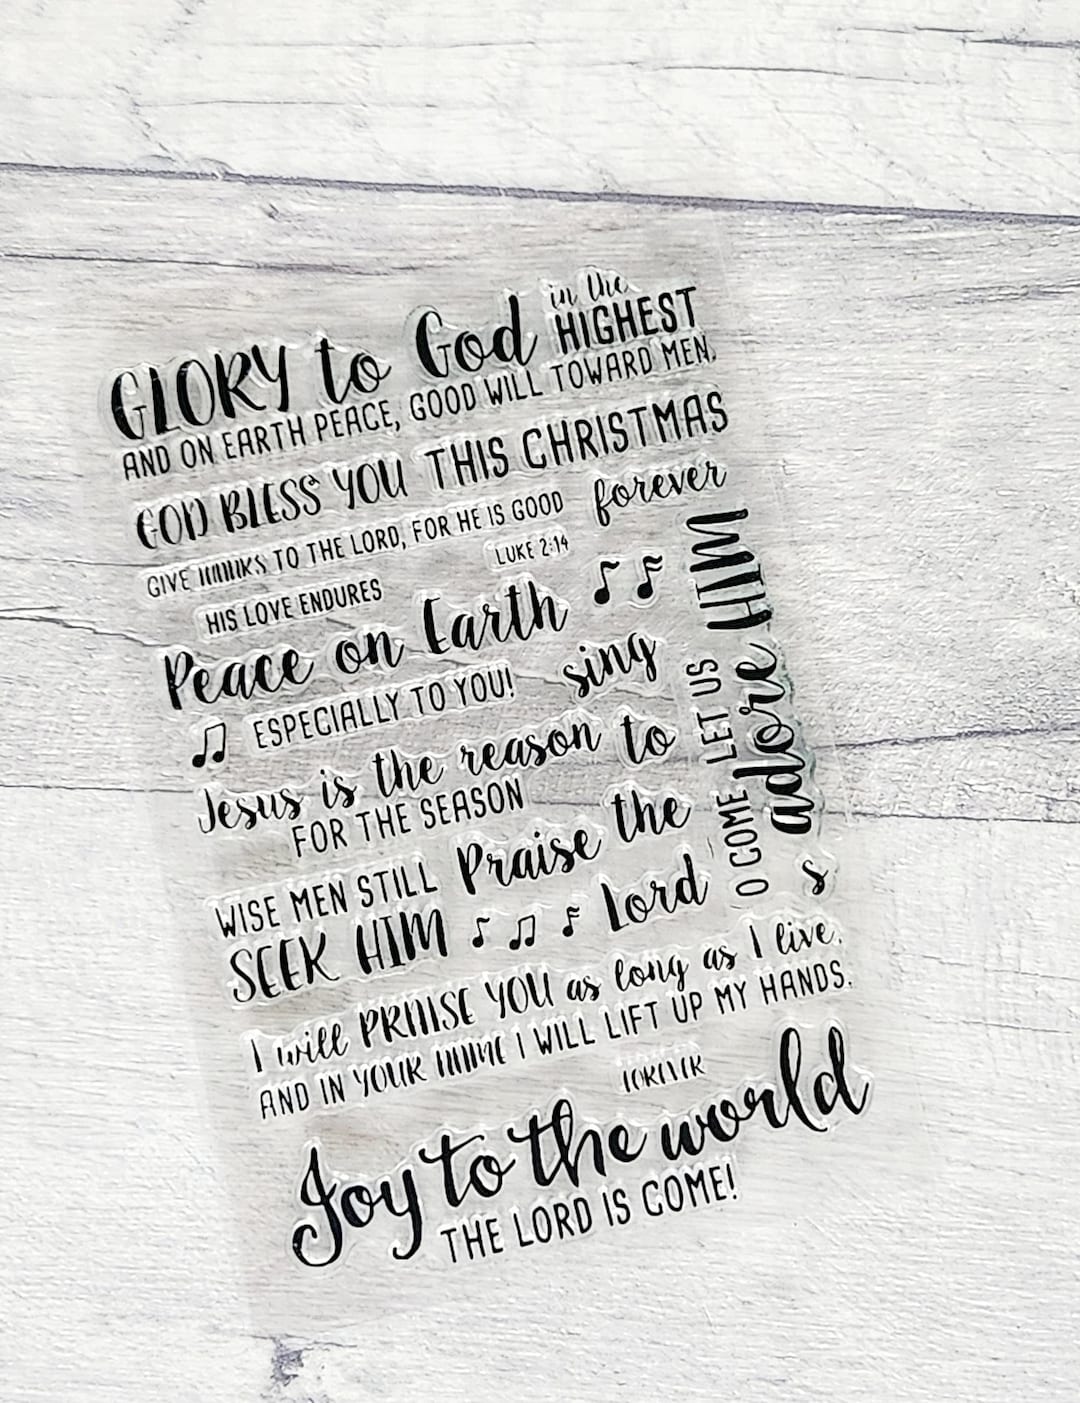 GLORY to God in the HIGHEST
AND ON EARTH PEACE, GOOD WILL TOWARD MEN.
GOD BLESS YOU THIS CHRISTMAS
GIVE THANKS TO THE LORD, FOR HE IS GOOD
forever
LUKE 2:14
HIS LOVE ENDURES
Peace on Earth
sing
ESPECIALLY TO YOU!
Jesus is the reason to
FOR THE SEASON
O COME LET US
adore HIM
WISE MEN STILL
SEEK HIM
Praise the
Lord
s
I will PRAISE YOU as long as I live,
AND IN YOUR NAME I WILL LIFT UP MY HANDS.
FOREVER
Joy to the world
THE LORD IS COME!